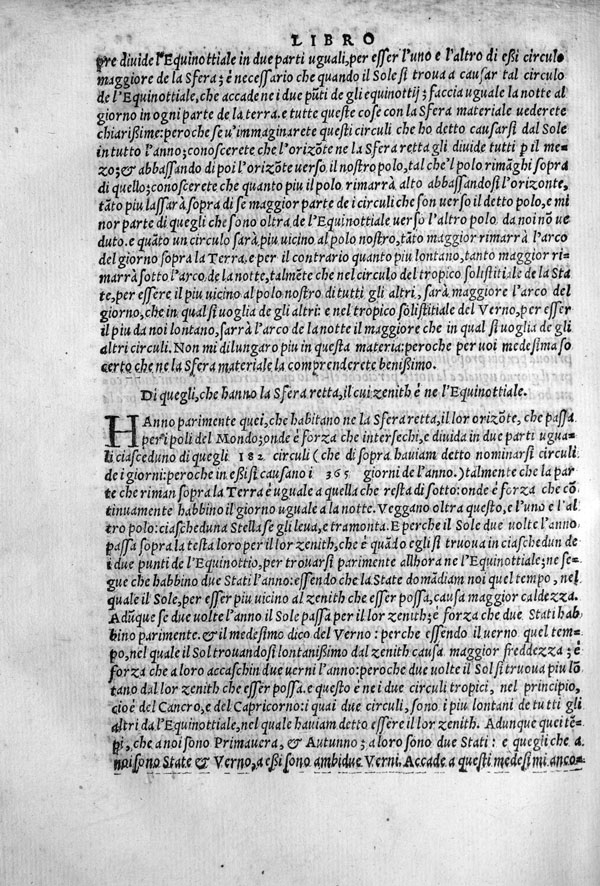 LIBRO
pre divide l'Equinottiale in due parti uguali, per esser l'uno e l'altro di eßi circulo
maggiore de la Sfera; é necessario che quando il Sole si trova a causar tal circulo
de l'Equinottiale, che accade ne i due pūti de gli equinottij; faccia uguale la notte al
giorno in ogni parte de la terra. e tutte queste cose con la Sfera materiale uederete
chiarißime: peroche se u'immaginarete questi circuli che ho detto causarsi dal Sole
in tutto l'anno; conoscerete che l'orizōte ne la Sfera retta gli divide tutti p il me-
zo; & abbassando di poi l'orizōte verso il nostro polo, tal che'l polo rimāghi sopra
di quello; conoscerete che quanto piu il polo rimarrà alto abbassandosi l'orizonte,
tāto piu lassarà sopra di se maggior parte de i circuli che son verso il detto polo, e mi
nor parte di quegli che sono oltra de l'Equinottiale verso l'altro polo da noi nō ue
duto. e quāto un circulo sarà piu uicino al polo nostro, tāto maggior rimarrà l'arco
del giorno sopra la Terra, e per il contrario quanto piu lontano, tanto maggior ri-
marrà sotto l'arco de la notte, talmēte che nel circulo del tropico solistitiale de la Sta
te, per essere il piu uicino al polo nostro di tutti gli altri, sarà maggiore l'arco del
giorno, che in qual si uoglia de gli altri: e nel tropico solistitiale del Verno, per esser
il piu da noi lontano, sarrà l'arco de la notte il maggiore che in qual si uoglia de gli
altri circuli. Non mi dilungaro piu in questa materia: peroche per voi medesima so
certo che ne la Sfera materiale la comprenderete benißimo.
Di quegli, che hanno la Sfera retta, il cui zenith é ne l'Equinottiale.
HAnno parimente quei, che habitano ne la Sfera retta, il lor orizōte, che passa
per i poli del Mondo; onde é forza che intersechi, e divida in due parti ugua-
li ciascduno di quegli 182 circuli (che di sopra haviam detto nominarsi circuli
de i giorni: peroche in eßi si causano i 365 giorni de l'anno.) talmente che la par
te che riman sopra la Terra é uguale a quella che resta di sotto: onde é forza che cō
tinuamente habbino il giorno uguale a la notte. Veggano oltra questo, e l'uno e l'al
tro polo: ciascheduna Stella se gli leua, e tramonta. E perche il Sole due volte l'anno
passa sopra la testa loro per il lor zenith, che é quādo egli si truova in ciaschedun de
i due punti de l'Equinottio, per trovarsi parimente allhora ne l'Equinottiale; ne se-
gue che habbino due Stati l'anno: essendo che la State domādiam noi quel tempo, nel
quale il Sole, per esser piu uicino al zenith che esser possa, causa maggior caldezza.
Adūque se due volte l'anno il Sole passa per il lor zenith; é forza che due Stati hab
bino parimente. & il medesimo dico del Verno: perche essendo il verno quel tem-
po, nel quale il Sol trovandosi lontanißimo dal zenith causa maggior freddezza; é
forza che a loro accaschin due verni l'anno: peroche due volte il Sol si truova piu lō
tano dal lor zenith che esser possa. e questo é ne i due circuli tropici, nel principio,
cioé del Cancro, e del Capricorno: i quai due circuli, sono i piu lontani de tutti gli
altri da l'Equinottiale, nel quale haviam detto essere il lor zenith. Adunque quei tē-
pi, che a noi sono Primavera, & Autunno; a loro sono due Stati: e quegli che a
noi sono State & Verno, a eßi sono ambidue Verni. Accade a questi medesimi anco-